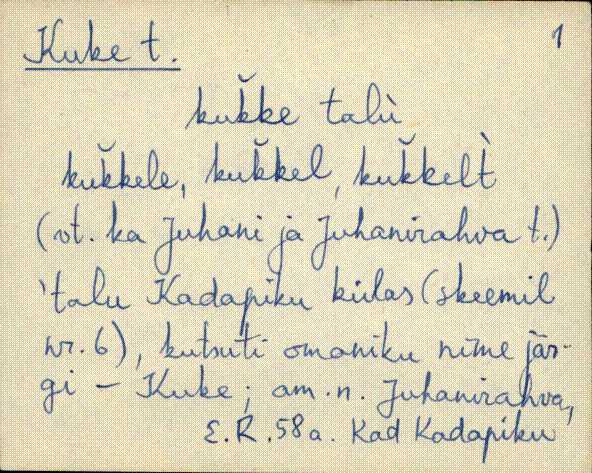 Kuke t. 1
kuk̆ke talù
kuk̆kele, kuk̆kel, kuk̆kelt̀
(vt. ka Juhani ja Juhanirahva t.)
'talu Kadapiku külas (skeemil
nr. 6), kutsuti omaniku nime jär-
gi – Kuke; am. n. Juhanirahva,
E.R. 58 a. Kad Kadapiku